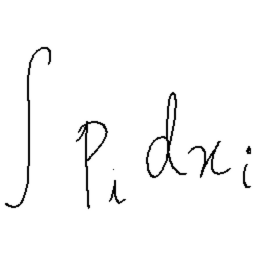 ∫ p_i dx_i